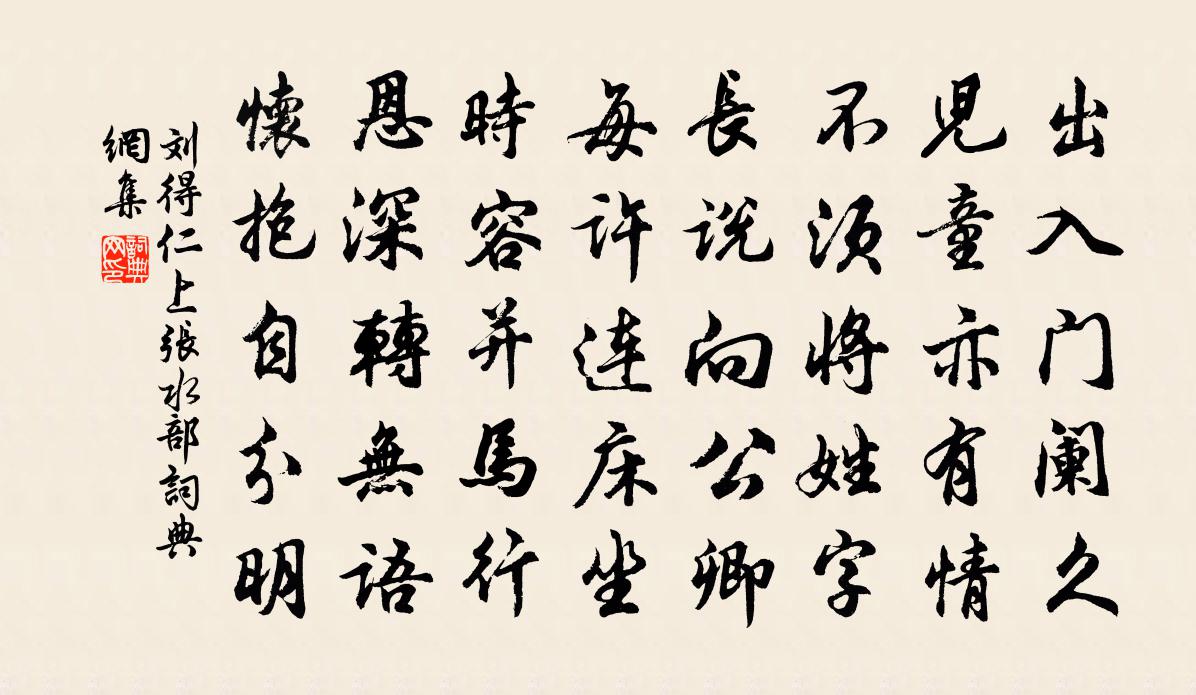 出入门阑久
児童亦有情
不须將姓字
長说向公卿
每许连床坐
時容并馬行
恩深轉無語
懷抱自分明
刘得仁上張水部詞典
網集
詞典
网印